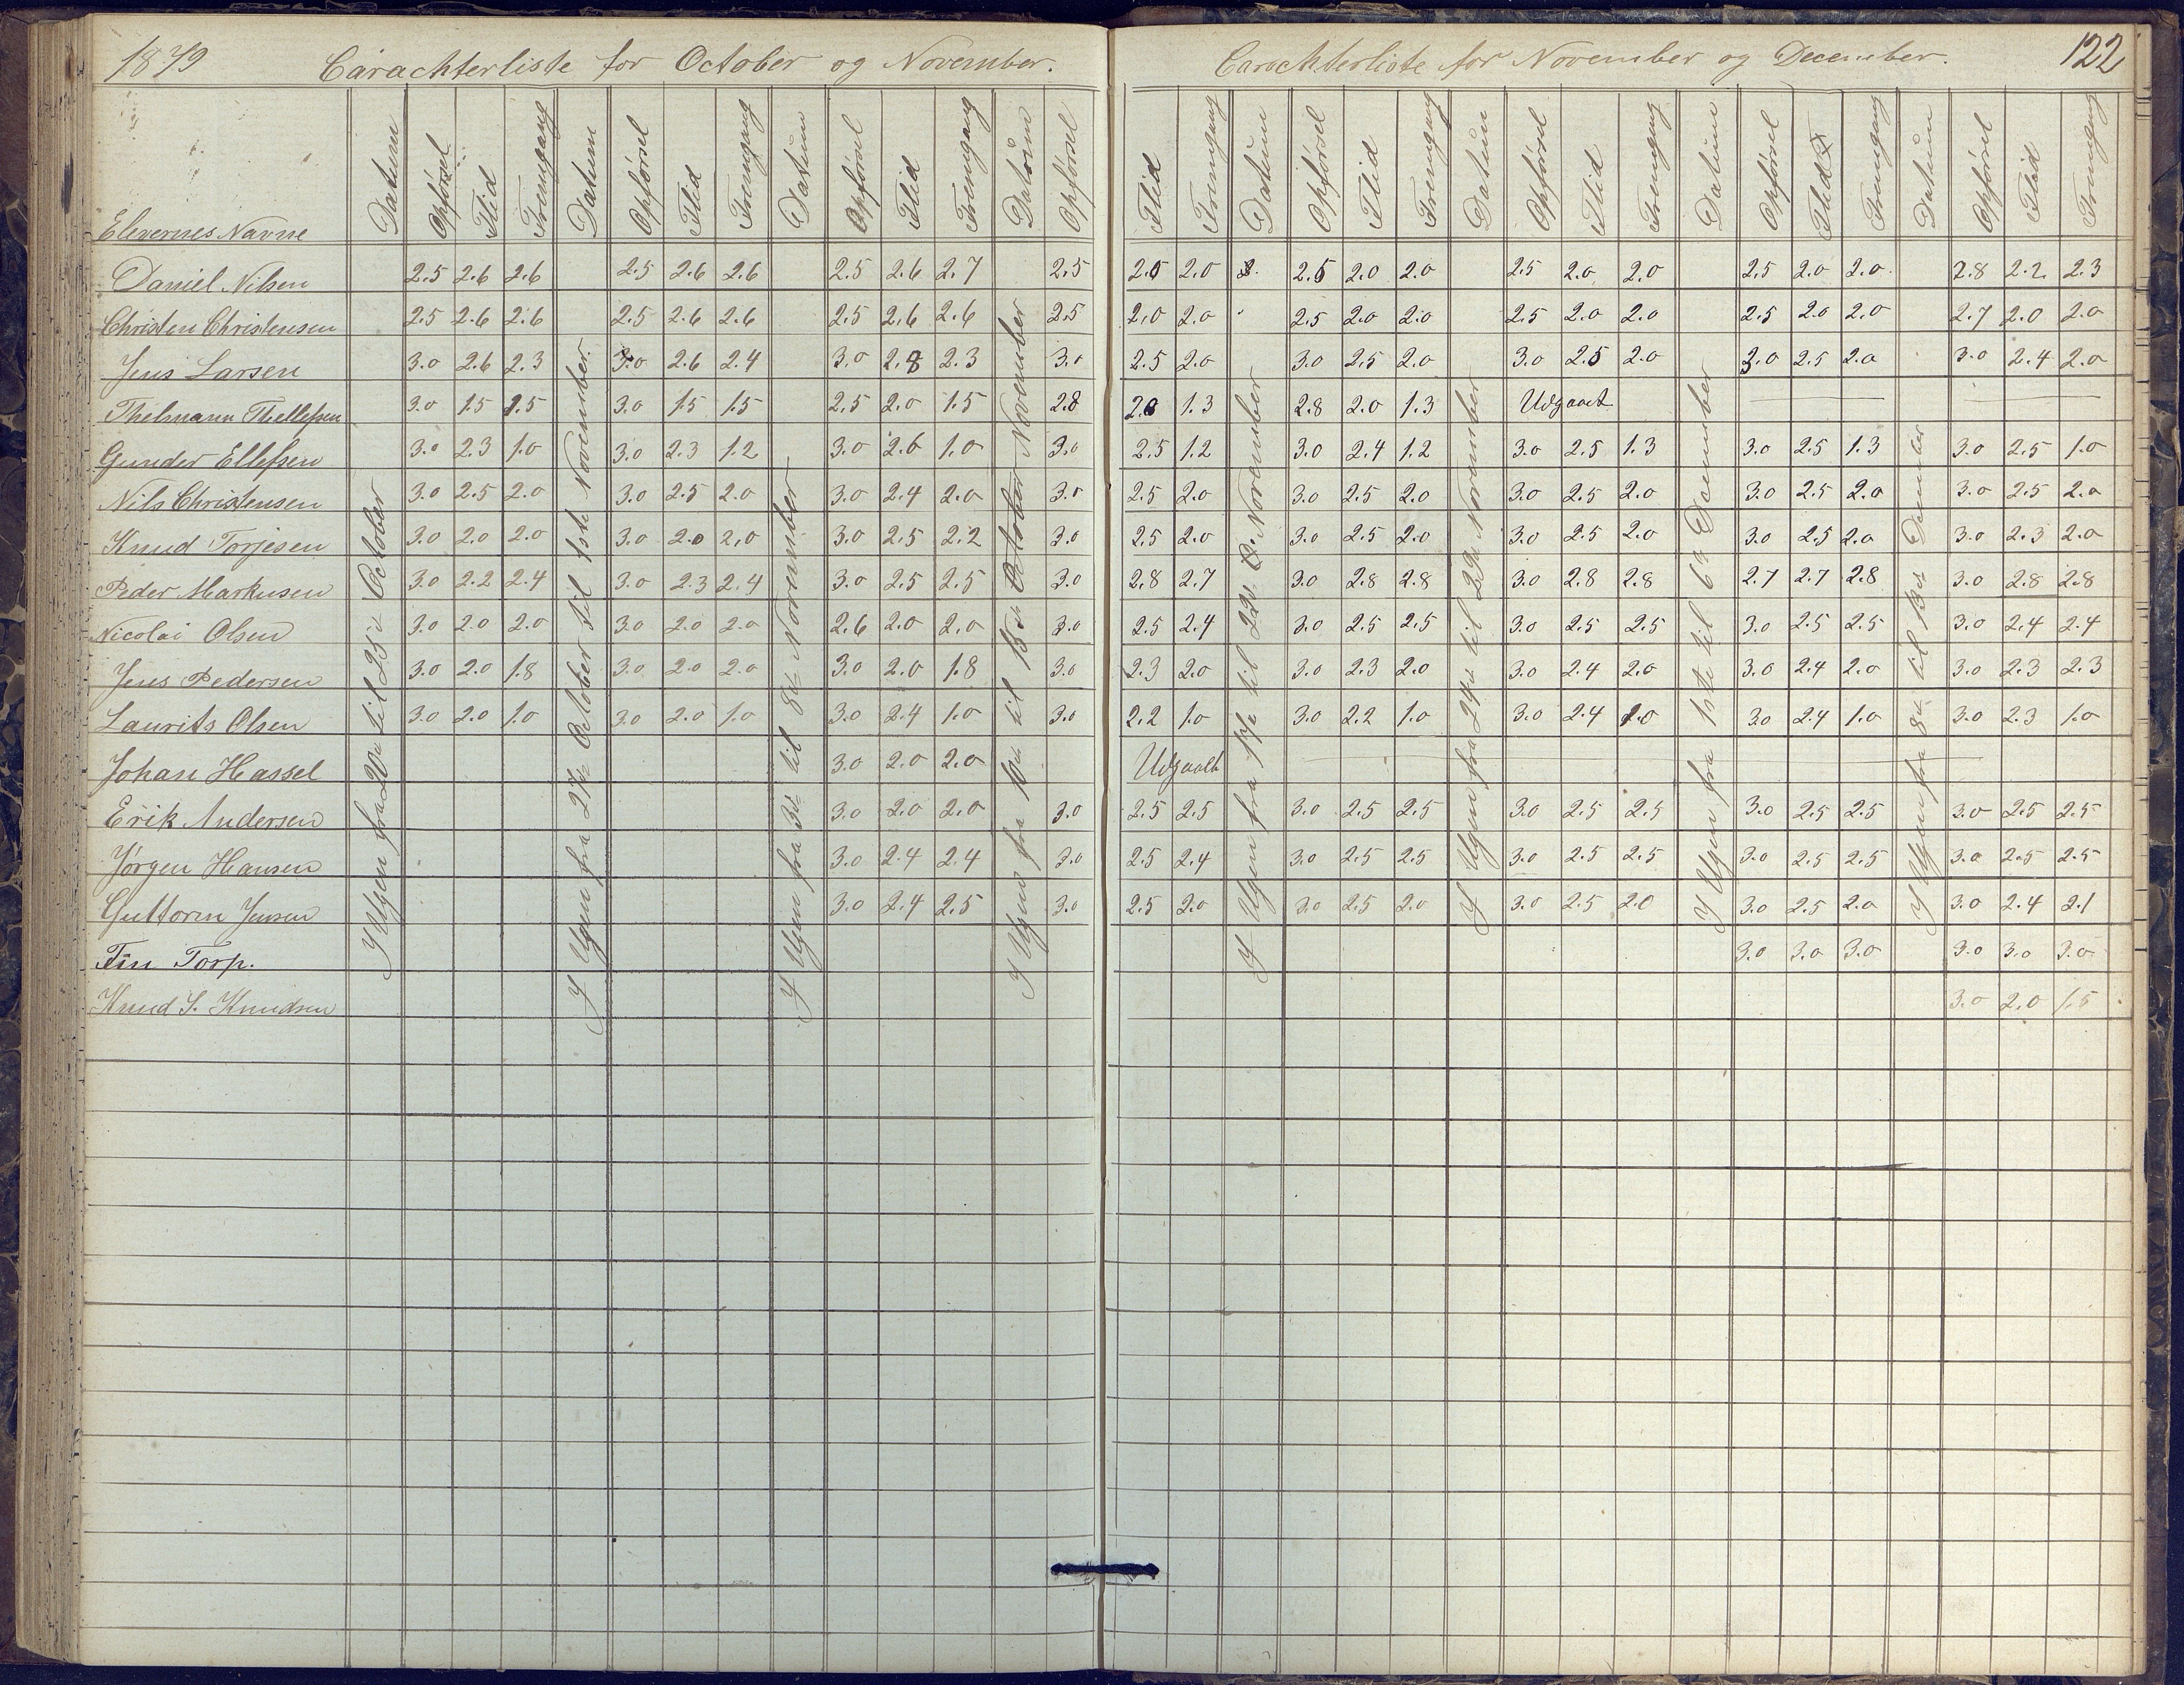 1879 Carachterliste for October og November.
Elevernes Navne Datum Opførsel Flid Fremgang Datum Opførsel Flid Fremgang Datum Opførsel Flid Fremgang Datum Opførsel
Daniel Nilsen 2.5 2.6 2.6 2.5 2.6 2.6 2.5 2.6 2.7 2.5
Christen Christensen 2.5 2.6 2.6 2.5 2.6 2.6 2.5 2.6 2.6 2.5
Jens Larsen 3.0 2.6 2.3 3.0 2.6 2.4 3.0 2.8 2.3 3.0
Thelmann Thellefsen 3.0 1.5 1.5 3.0 1.5 1.5 2.5 2.0 1.5 2.8
Gunder Ellefsen 3.0 2.3 1.0 3.0 2.3 1.2 3.0 2.6 1.0 3.0
Nils Christensen 3.0 2.5 2.0 3.0 2.5 2.0 3.0 2.4 2.0 3.0
Knud Torjesen 3.0 2.0 2.0 3.0 2.0 2.0 3.0 2.5 2.2 3.0
Peder Markusen 3.0 2.2 2.4 3.0 2.3 2.4 3.0 2.5 2.5 3.0
Nicolai Olsen 3.0 2.0 2.0 3.0 2.0 2.0 2.6 2.0 2.0 3.0
Jens Pedersen 3.0 2.0 1.8 3.0 2.0 2.0 3.0 2.0 1.8 3.0
Laurits Olsen 3.0 2.0 1.0 3.0 2.0 1.0 3.0 2.4 1.0 3.0
Johan Hassel 3.0 2.0 2.0
Erik Andersen 3.0 2.0 2.0 3.0
Jørgen Hansen 3.0 2.4 2.4 3.0
Guttorm Jensen 3.0 2.4 2.5 3.0
Fin Torp.
Knud S. Knudsen
I Ugen fra 20de til 25de October
I Ugen fra 27de October til 1ste November.
I Ugen fra 3die til 8de November
I Ugen fra 10de til 15de October November
Carachterliste for November og December. 122
Flid Fremgang Datum Opførsel Flid Fremgang Datum Opførsel Flid Fremgang Datum Opførsel Flid Fremgang Datum Opførsel Flid Fremgang
2.0 2.0 2.5 2.0 2.0 2.5 2.0 2.0 2.5 2.0 2.0 2.8 2.2 2.3
2.0 2.0 2.5 2.0 2.0 2.5 2.0 2.0 2.5 2.0 2.0 2.7 2.0 2.0
2.5 2.0 3.0 2.5 2.0 3.0 2.5 2.0 3.0 2.5 2.0 3.0 2.4 2.0
2.0 1.3 2.8 2.0 1.3 Udgaaet
2.5 1.2 3.0 2.4 1.2 3.0 2.5 1.3 3.0 2.5 1.3 3.0 2.5 1.0
2.5 2.0 3.0 2.5 2.0 3.0 2.5 2.0 3.0 2.5 2.0 3.0 2.5 2.0
2.5 2.0 3.0 2.5 2.0 3.0 2.5 2.0 3.0 2.5 2.0 3.0 2.3 2.0
2.8 2.7 3.0 2.8 2.8 3.0 2.8 2.8 2.7 2.7 2.8 3.0 2.8 2.8
2.5 2.4 3.0 2.5 2.5 3.0 2.5 2.5 3.0 2.5 2.5 3.0 2.4 2.4
2.3 2.0 3.0 2.3 2.0 3.0 2.4 2.0 3.0 2.4 2.0 3.0 2.3 2.3
2.2 1.0 3.0 2.2 1.0 3.0 2.4 1.0 3.0 2.4 1.0 3.0 2.3 1.0
Udgaaet
2.5 2.5 3.0 2.5 2.5 3.0 2.5 2.5 3.0 2.5 2.5 3.0 2.5 2.5
2.5 2.4 3.0 2.5 2.5 3.0 2.5 2.5 3.0 2.5 2.5 3.0 2.5 2.5
2.5 2.0 3.0 2.5 2.0 3.0 2.5 2.0 3.0 2.5 2.0 3.0 2.4 2.1
3.0 3.0 3.0 3.0 3.0 3.0
3.0 2.0 1.5
I Ugen fra 17de til 22de November
I Ugen fra 24de til 29de November
I Ugen fra 1ste til 6te December
I Ugen fra 8de til 13de December